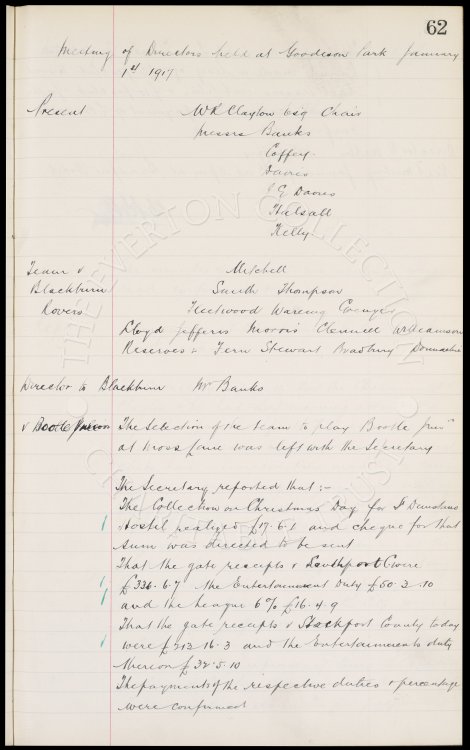 62
Meeting of Directors held at Goodison Park January
1st 1917
Present W R Clayton Esq Chair
Messrs Banks
Coffey
Davies
J E Davies
Halsall
Kelly
Team v Mitchell
Blackburn Smith Thompson
Rovers Fleetwood Wareing Grenyer
Lloyd Jefferis Morris Clennell Williamson
Reserves Fern Stewart Bradbury Donnachie
Director to Blackburn Mr Banks
v Bootle Juniors The Selection of the team to play Bootle Jun
at Moss Lane was left with the Secretary
The Secretary reported that :-
The Collection on Christmas Day for St Dunstans
Hostel realized £17.6.1 and cheque for that
sum was directed to be sent
That the gate receipts v Southport C were
£336.6.7 the Entertainment Duty £50.2.10
and the League 6% £16.4.9
That the gate receipts v Stockport County today
were £212.16.3 and the Entertainments duty
thereon £32.5.10
The payments of the respective duties & percentage
were confirmed
THE EVERTON COLLECTION
CHARITABLE TRUST